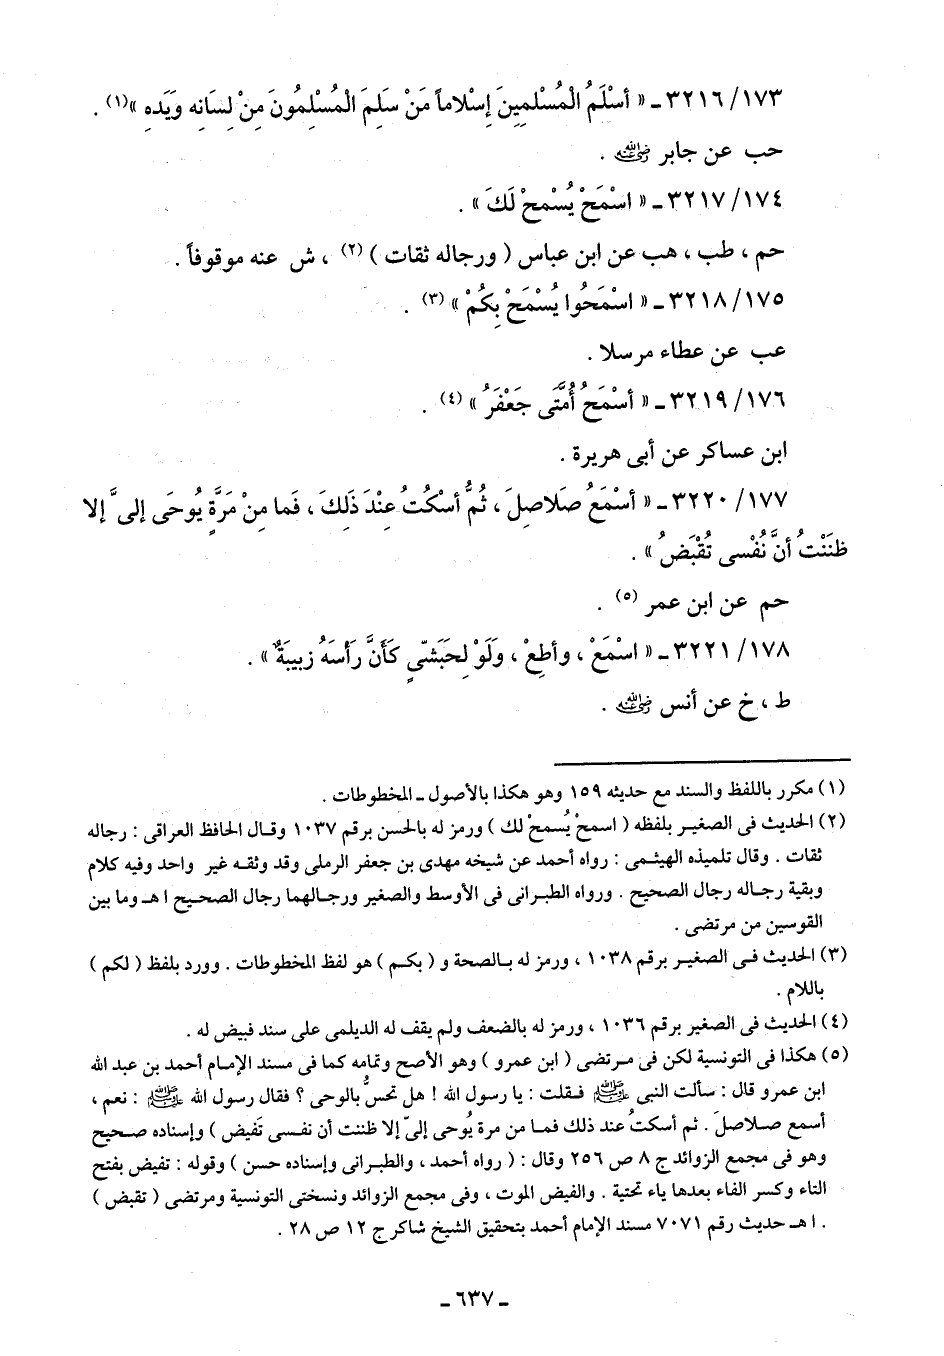 ٣٢١٦/١٧٣ ـ « أسْلَمُ الْمُسْلِمِينَ إِسْلاماً مَنْ سَلِمَ الْمُسْلِمُونَ مِنْ لِسَانِه وَيَدهِ »(١) .
حب عن جابر رضي الله عنه .
٣٢١٧/١٧٤ ـ « اسْمَحْ يُسْمحْ لَكَ » .
حم ، طب ، هب عن ابن عباس ( ورجاله ثقات ) (٢) ، ش عنه موقوفاً .
٣٢١٨/١٧٥ ـ « اسْمَحُوا يُسْمَحْ بِكُمْ » (٣) .
عب عن عطاء مرسلا .
٣٢١٩/١٧٦ ـ « أسْمَحُ أُمَّتى جَعْفَرُ » (٤) .
ابن عساكر عن أبى هريرة .
٣٢٢٠/١٧٧ ـ « أسْمَعُ صَلاصِلَ ، ثُمَّ أسْكُتُ عِنْدَ ذَلِكَ ، فَما مِنْ مَرَّةٍ يُوحَى إلىَّ إلا
ظنَنْتُ أنَّ نُفْسى تُقْبَضُ » .
حم عن ابن عمر (٥) .
٣٢٢١/١٧٨ ـ « اسْمَعْ ، وأطِعْ ، وَلَوْ لِحَبَشّىٍ كَأَنَّ رَأْسَهُ زبيبَةٌ » .
ط ، خ عن أنس رضي الله عنه .
(١) مكرر باللفظ والسند مع حديثه ١٥٩ وهو هكذا بالأصول ـ المخطوطات .
(٢) الحديث فى الصغير بلفظه ( اسمحْ يُسمحْ لك ) ورمز له بالحسن برقم ١٠٣٧ وقال الحافظ العراقى : رجاله
ثقات . وقال تلميذه الهيثمى : رواه أحمد عن شيخه مهدى بن جعفر الرملى وقد وثقه غير واحد وفيه كلام
وبقية رجاله رجال الصحيح . ورواه الطبرانى فى الأوسط والصغير ورجالهما رجال الصحيح ا هـ وما بين
القوسين من مرتضى .
(٣) الحديث فى الصغير برقم ١٠٣٨ ، ورمز له بالصحة و ( بكم ) هو لفظ المخطوطات . وورد بلفظ ( لكم )
باللام .
(٤) الحديث فى الصغير برقم ١٠٣٦ ، ورمز له بالضعف ولم يقف له الديلمى على سند فبيض له .
(٥) هكذا فى التونسية لكن فى مرتضى ( ابن عمرو ) وهو الأصح وتمامه كما فى مسند الإمام أحمد بن عبد الله
ابن عمرو قال : سألت النبى ﷺ فقلت : يا رسول الله ! هل تحسُّ بالوحى ؟ فقال رسول الله ﷺ : نعم ،
أسمع صلاصلَ . ثم أسكتُ عند ذلك فما من مرة يُوحى إلىّ إلا ظننت أن نفسى تَفيض ) وإسناده صحيح
وهو فى مجمع الزوائد ج ٨ ص ٢٥٦ وقال : ( رواه أحمد ، والطبرانى وإسناده حسن ) وقوله : تفيض بفتح
التاء وكسر الفاء بعدها ياء تحتية . والفيض الموت ، وفى مجمع الزوائد ونسختى التونسية ومرتضى ( تقبض )
. ا هـ حديث رقم ٧٠٧١ مسند الإمام أحمد بتحقيق الشيخ شاكر ج ١٢ ص ٢٨ .
ـ ٦٣٧ ـ